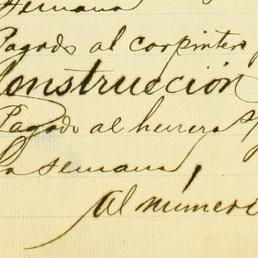 semana
Pagado al carpintero
Construcción
Pagado al herrero
la semana
al número